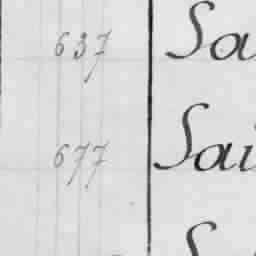 637 Sa
677 Sai